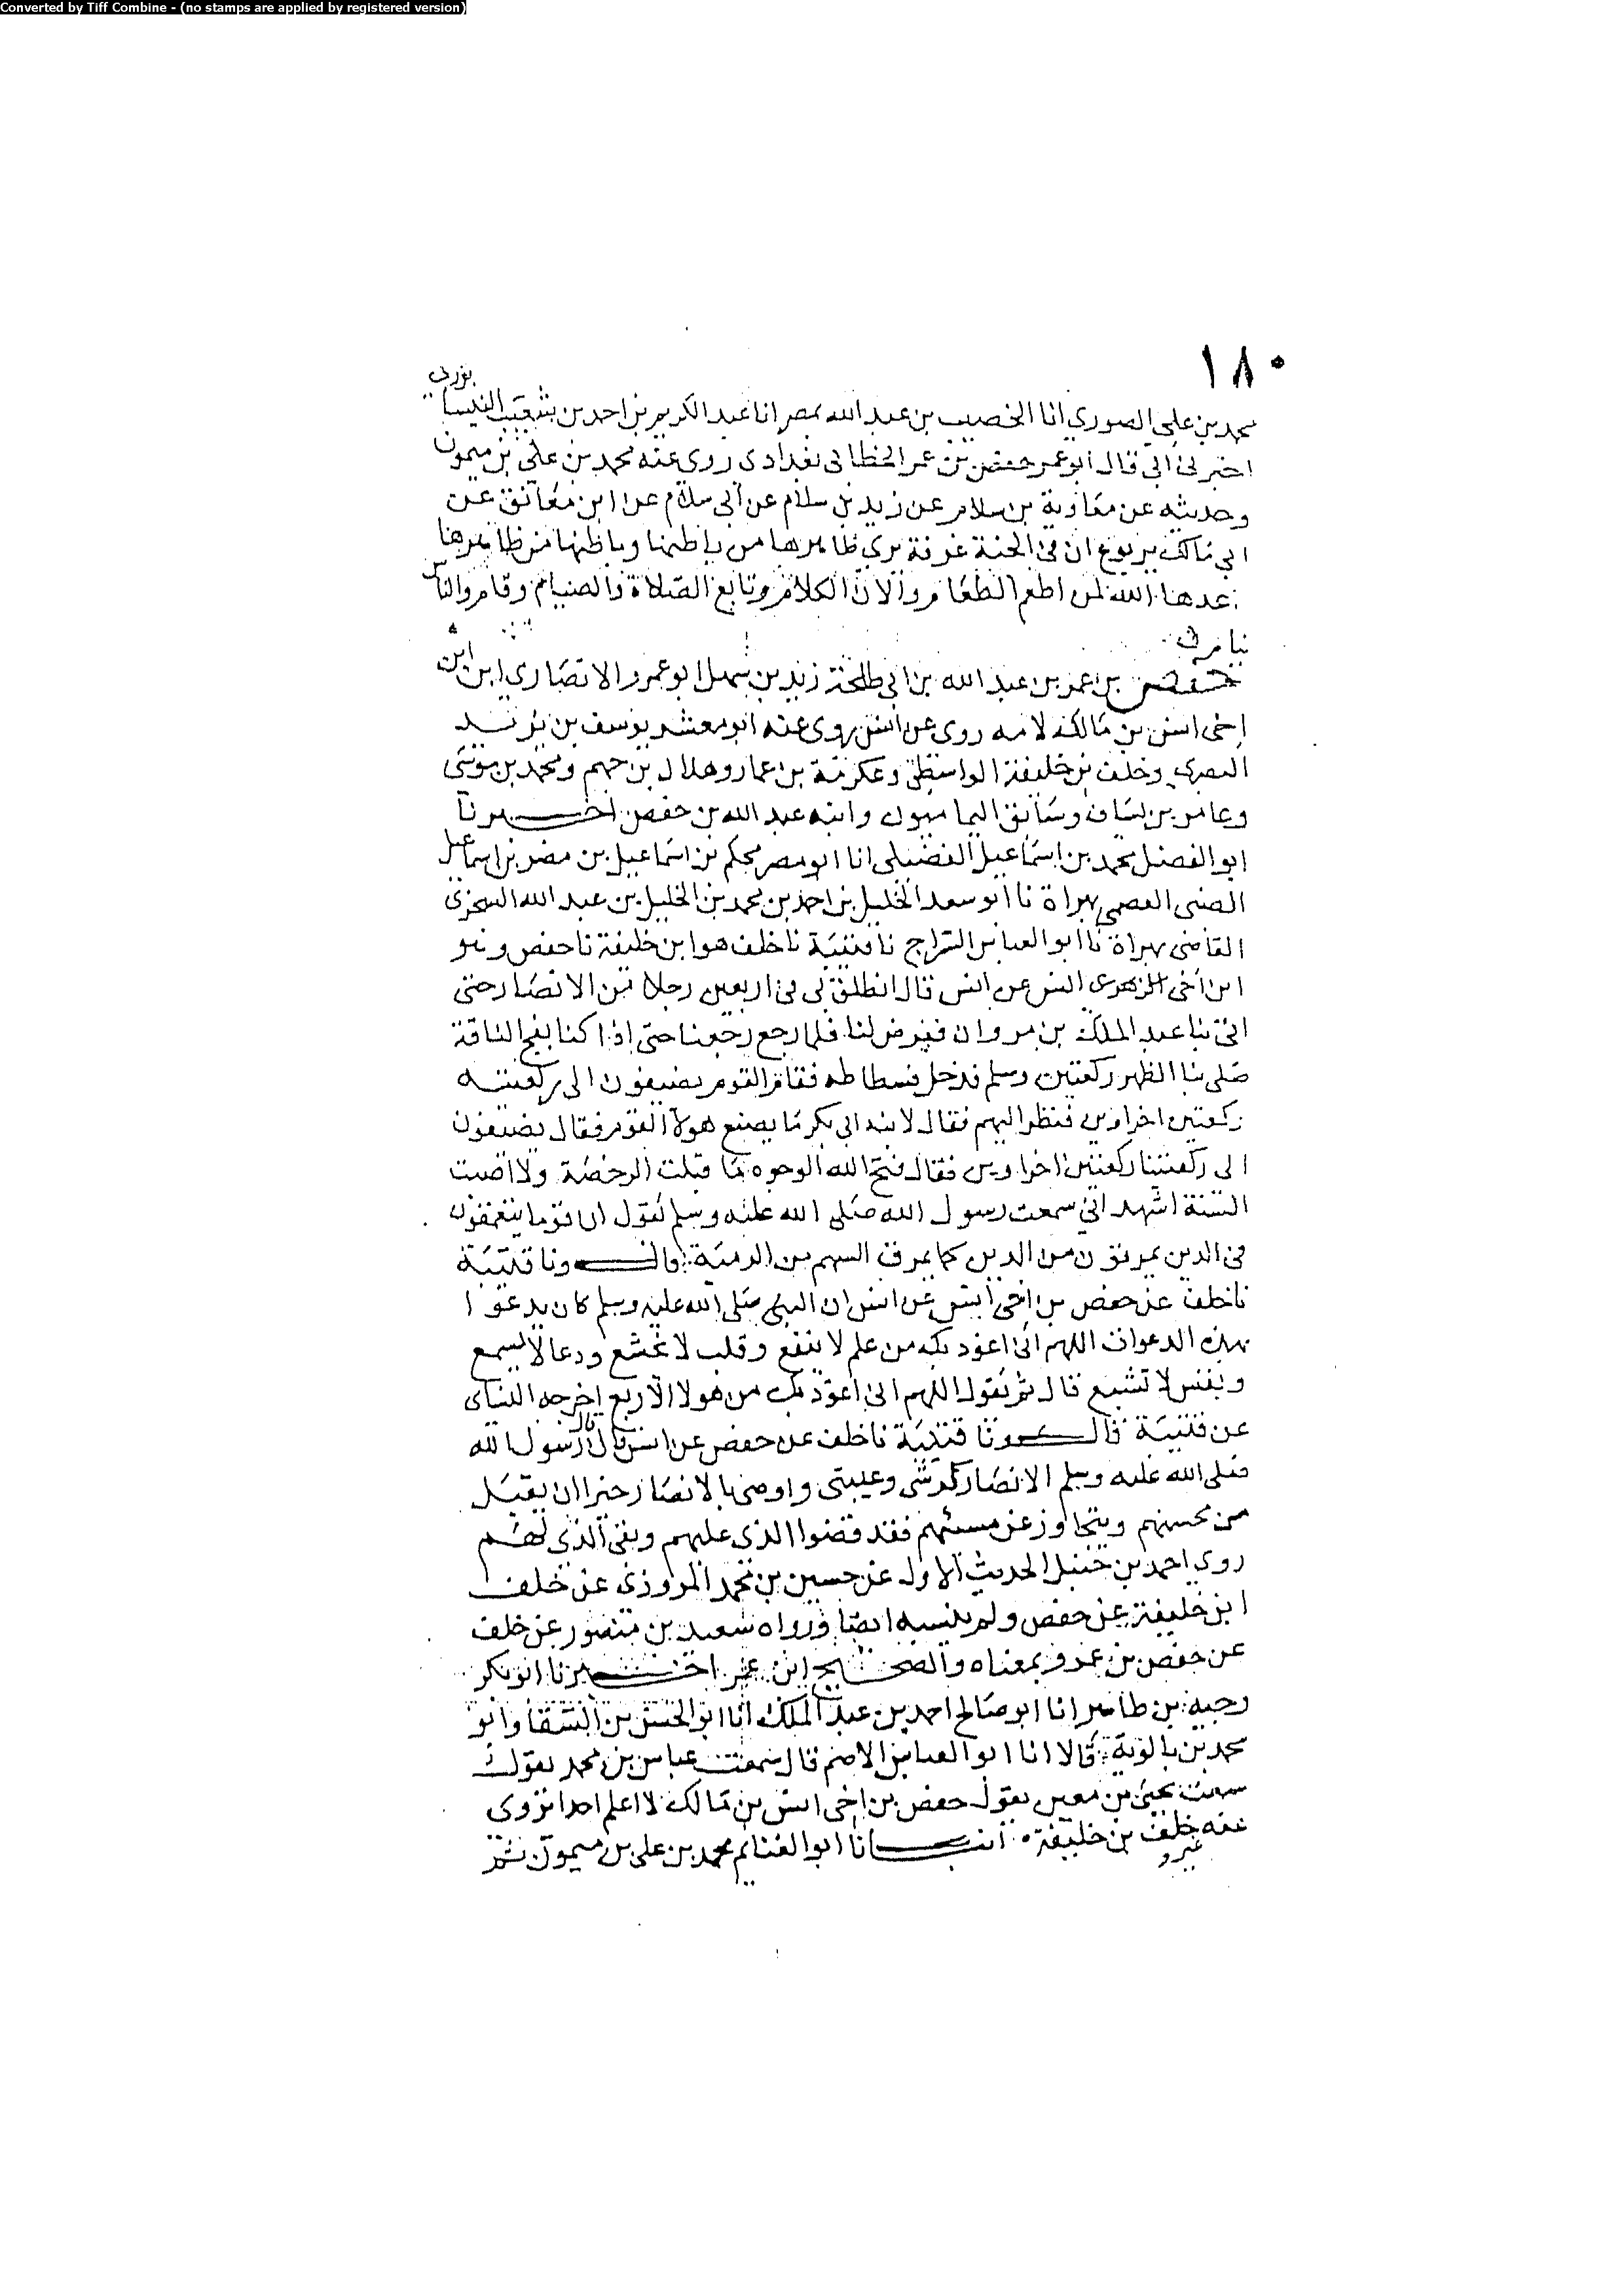 Converted by Tiff Combine - (no stamps are applied by registered version)
١٨٠
محمد بن علي الصوري انا الخصيب بن عبد الله بمصر انا عبد الكريم بن احمد بن شعيب النيسا
بوري
اخبرني ابي قال ابو عمر حفص بن عمر الخطابي بغدادي روى عنه محمد بن علي بن ميمون
وحديثه عن معاوية بن سلام عن زيد بن سلام عن ابي سلام عن ابن معانق عن
ابي مالك يرفوع ان في الجنة غرفة يرى ظاهرها من باطنها وباطنها من ظاهرها
اعدها الله لمن اطعم الطعام والان الكلام وتابع الصلاة والصيام وقام والناس
نيام
حفص بن عمر بن عبد الله بن ابي طلحة زيد بن سهل ابو عمرو الانصاري ابن ابن
اخي انس بن مالك لامه روى عن انس روى عنه ابو معشر يوسف بن يزيد
البصري وخلف بن خليفة الواسطي وعكرمة بن عمار وهلال بن جهم ومحمد بن موسى
وعامر بن يساف وسائق اليماميون وابنه عبد الله بن حفص اخبرنا
ابو الفضل محمد بن اسماعيل الفضيلي انا ابو مضر محكم بن اسماعيل بن مضر بن اسماعيل
الضبي العصمي بهراة نا ابو سعد الخليل بن احمد بن محمد بن الخليل بن عبد الله السجزي
القاضي بهراة نا ابو العباس السراج نا قتيبة نا خلف هو ابن خليفة نا حفص وهو
ابن اخي انس عن انس قال انطلق بي في اربعين رجلا من الانصار حتى
اتى بنا عبد الملك بن مروان ففرض لنا فلما رجع رجعنا حتى اذا كنا بفج الناقة
صلى بنا الظهر ركعتين وسلم فدخل فسطاطه فقام القوم يضيفون الى ركعتيه
ركعتين اخراوين فنظر اليهم فقال لابنه ابي بكر ما يصنع هولاء القوم فقال يضيفون
الى ركعتينا ركعتين اخراوين فقال قبح الله الوجوه ما قبلت الرخصة ولا اصبت
السنة اشهد اني سمعت رسول الله صلى الله عليه وسلم يقول ان قوما يتعمقون
في الدين يمرقون من الدين كما يمرق السهم من الرمية قال ونا قتيبة
نا خلف عن حفص بن اخي انس عن انس ان النبي صلى الله عليه وسلم كان يدعوا
بهذه الدعوات اللهم اني اعوذ بك من علم لا ينفع وقلب لا يخشع ودعا لا يسمع
ونفس لا تشبع قال ثم يقول اللهم اني اعوذ بك من هولا الاربع اخرجه النساى
عن قتيبة قال ونا قتيبة نا خلف عن حفص عن انس قال قال رسول الله
صلى الله عليه وسلم الانصار كرشي وعيبتي واوصي بالانصار خيرا ان يقبل
من محسنهم ويتجاوز عن مسيئهم فقد قضوا الذي عليهم وبقي الذي لهم
روى احمد بن حنبل الحديث الاول عن حسين بن محمد المروذي عن خلف
ابن خليفة عن حفص ولم ينسبه ايضا ورواه سعيد بن منصور عن خلف
عن حفص بن عمرو بمعناه والصحيح ابن عمر اخبرنا ابو بكر
وجيه بن طاهر انا ابو صالح احمد بن عبد الملك انا ابو الحسن بن السقا وابو
محمد بن بالويه قالا انا ابو العباس الاصم قال سمعت عباس بن محمد يقول
سمعت يحيى بن معين يقول حفص بن اخي انس بن مالك لا اعلم احدا يروي
عنه غير خلف بن خليفة انبانا ابو الغنائم محمد بن علي بن ميمون ثم